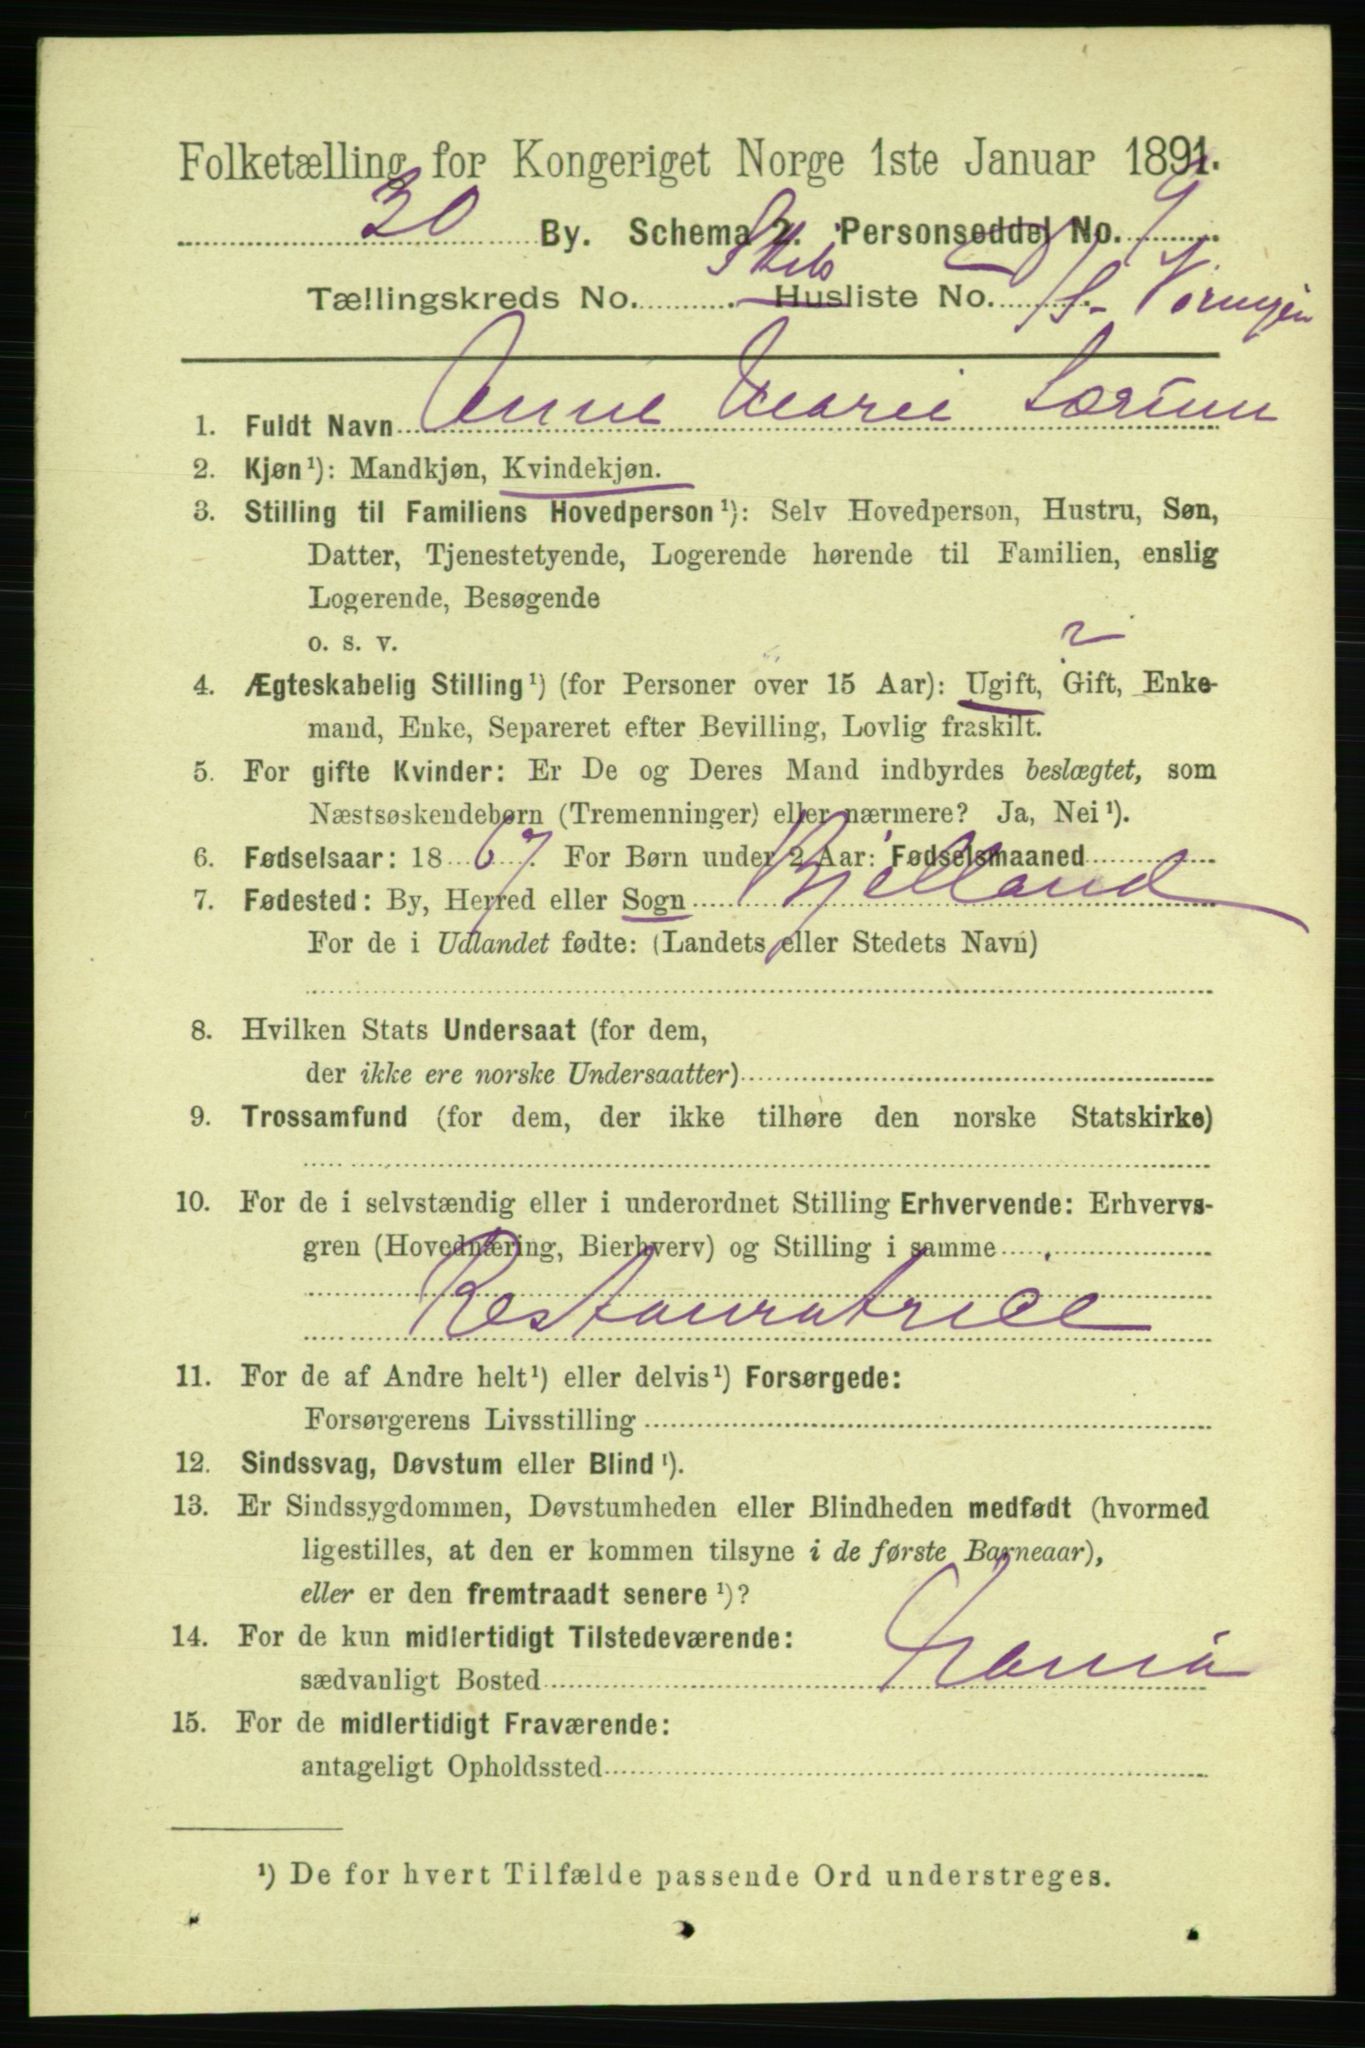 Folketælling for Kongeriget Norge 1ste Januar 1891.
30 By. Schema 2. Personseddel No. 9
Skib
Tællingskreds No. Husliste No. S. Vøringen
1. Fuldt Navn Anne Marie Sørum
2. Kjøn ¹): Mandkjøn, Kvindekjøn.
3. Stilling til Familiens Hovedperson ¹): Selv Hovedperson, Hustru, Søn,
Datter, Tjenestetyende, Logerende hørende til Familien, enslig
Logerende, Besøgende
o. s. v.
?
4. Ægteskabelig Stilling ¹) (for Personer over 15 Aar): Ugift, Gift, Enke-
mand, Enke, Separeret efter Bevilling, Lovlig fraskilt.
5. For gifte Kvinder: Er De og Deres Mand indbyrdes beslægtet, som
Næstsøskendebørn (Tremenninger) eller nærmere? Ja, Nei ¹).
6. Fødselsaar: 1867. For Børn under 2 Aar: Fødselsmaaned
7. Fødested: By, Herred eller Sogn Bjelland
For de i Udlandet fødte: (Landets eller Stedets Navn)
8. Hvilken Stats Undersaat (for dem,
der ikke ere norske Undersaatter)
9. Trossamfund (for dem, der ikke tilhøre den norske Statskirke)
10. For de i selvstændig eller i underordnet Stilling Erhvervende: Erhvervs-
gren (Hovednæring, Bierhverv) og Stilling i samme
Restauratrice
11. For de af Andre helt ¹) eller delvis ¹) Forsørgede:
Forsørgerens Livsstilling
12. Sindssvag, Døvstum eller Blind ¹).
13. Er Sindssygdommen, Døvstumheden eller Blindheden medfødt (hvormed
ligestilles, at den er kommen tilsyne i de første Barneaar),
eller er den fremtraadt senere ¹)?
14. For de kun midlertidigt Tilstedeværende:
sædvanligt Bosted
15. For de midlertidigt Fraværende:
antageligt Opholdssted
¹) De for hvert Tilfælde passende Ord understreges.